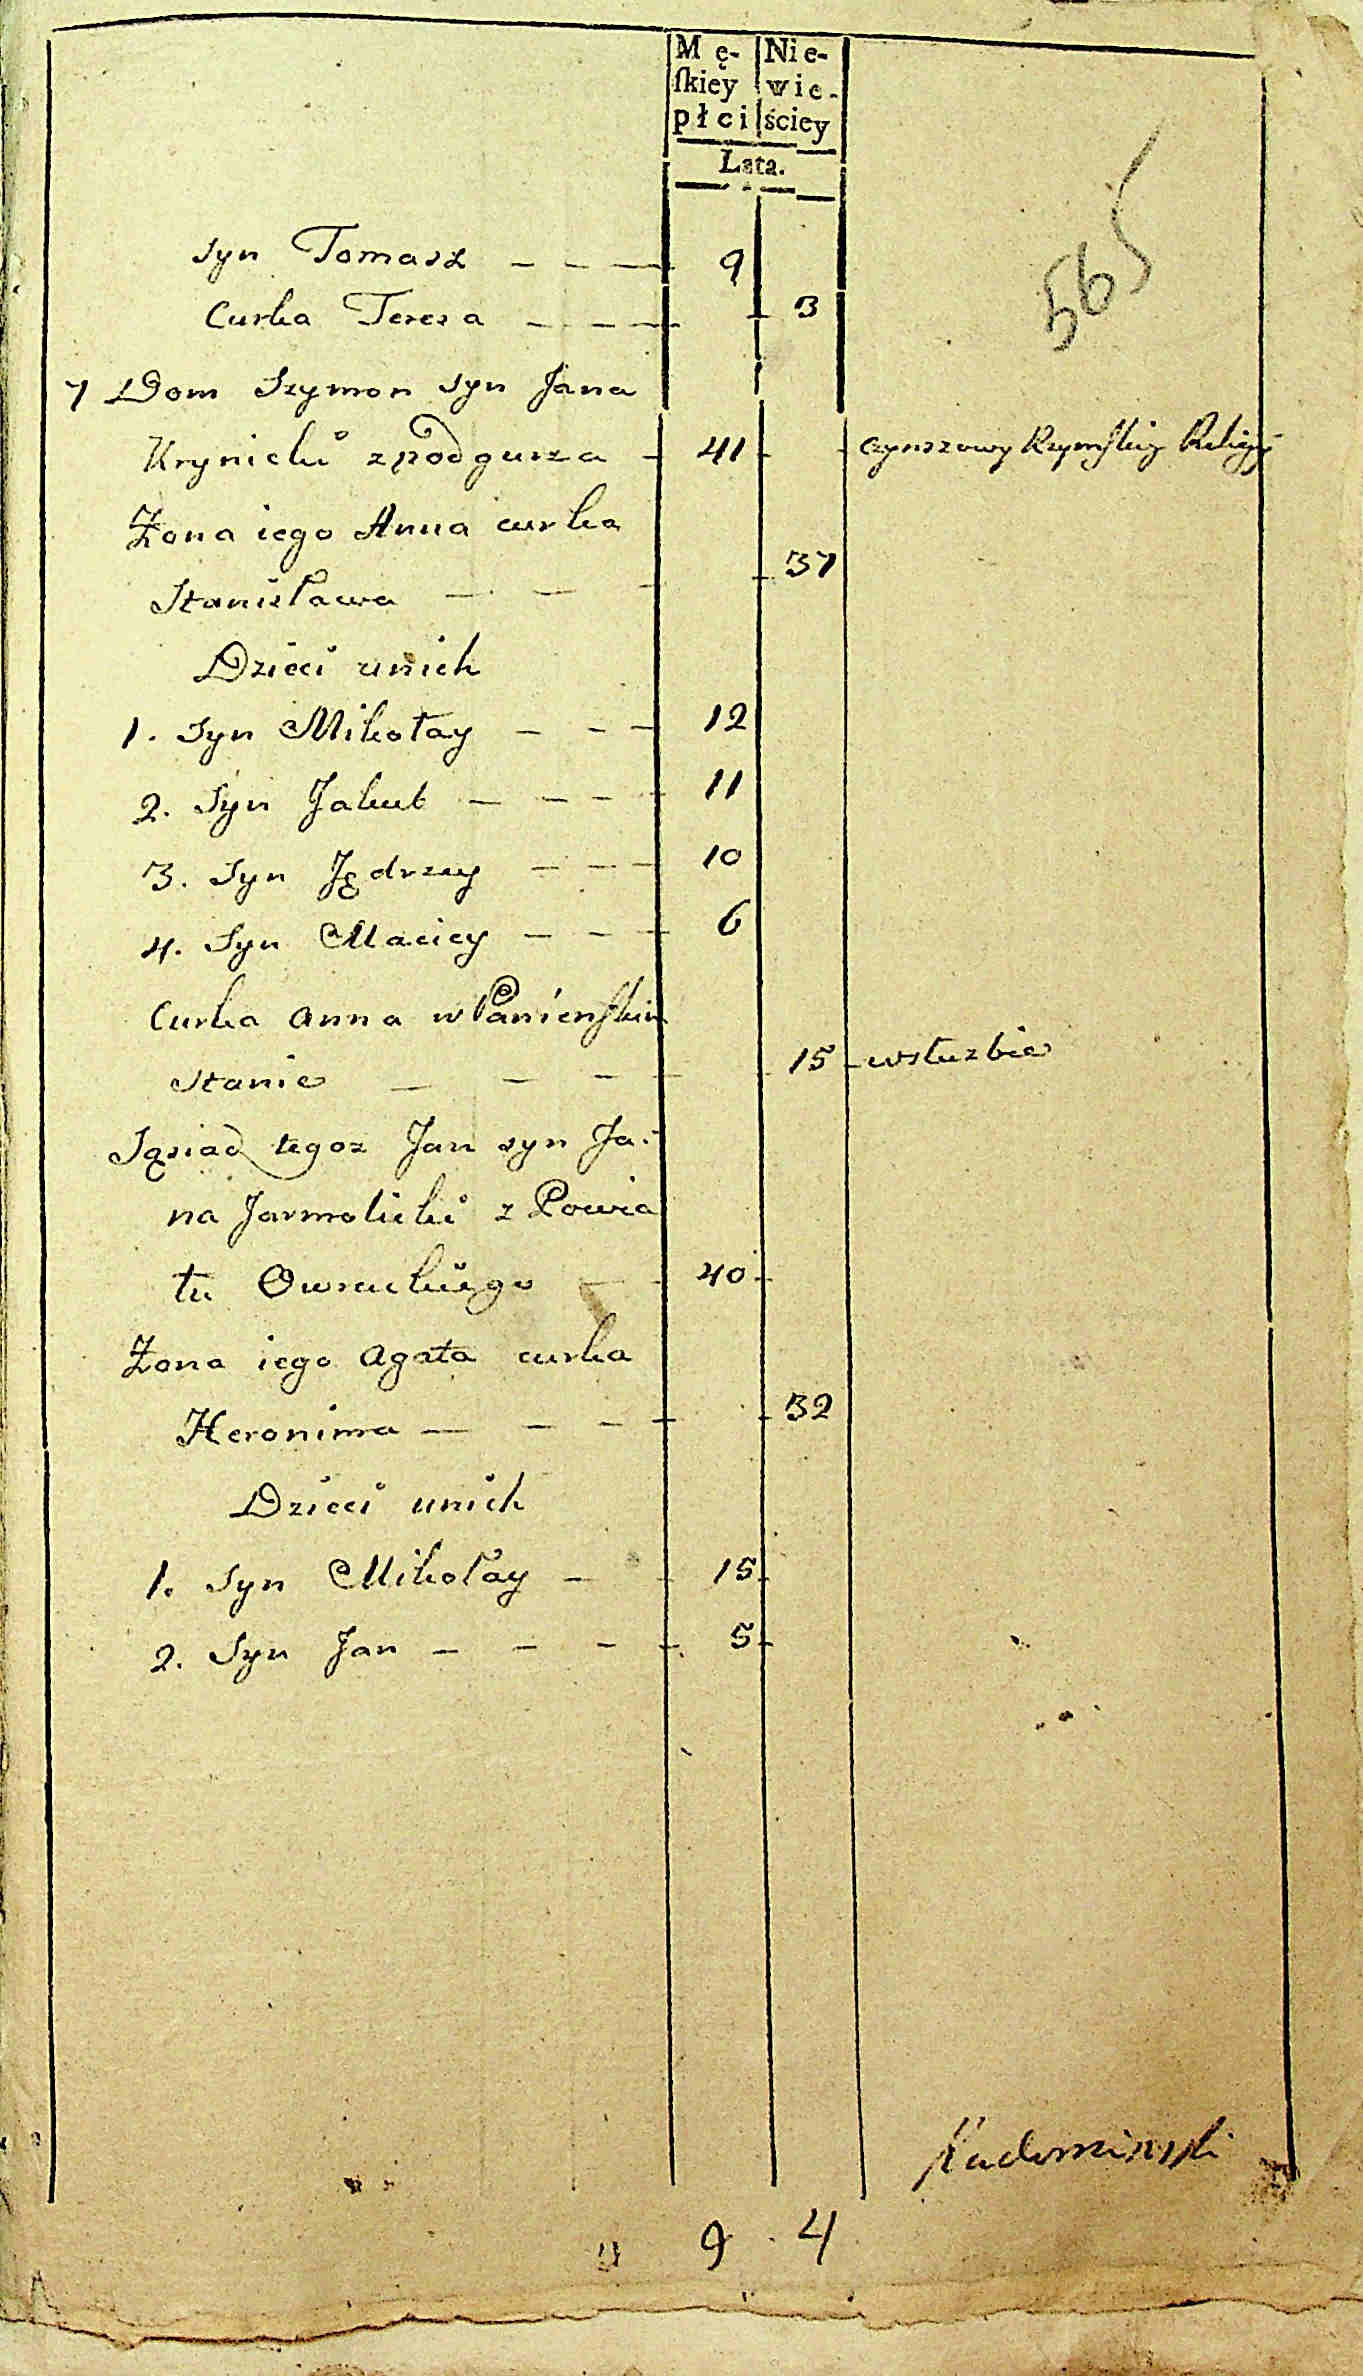 Mę- Nie-
ſkiey wie-
płci ściey
Lata.
565
Syn Tomasz — — — 9
Curka Teresa — — — 3
7 Dom Szymon Syn Jana
Krynicki zpodgurza - 41 czynszowy Rzymſkiey Religij
Żona iego Anna curka
Stanisława — — - 37
Dzieci unich
1. Syn Mikołay — — — 12
2. Syn Jakub — — — 11
3. Syn Jędrzey — — — 10
4. Syn Maciey — — — 6
Curka Anna w Panienſkim
Stanie — — — 15 wsłuzbie
Sąsiad tegoz Jan syn Ja-
na Jarmolicki z Powia
tu Owruckiego — 40
Żona iego Agata curka
Heronima — — — 32
Dzieci unich
1. Syn Mikołay — 15
2. Syn Jan — — — 5
9 4